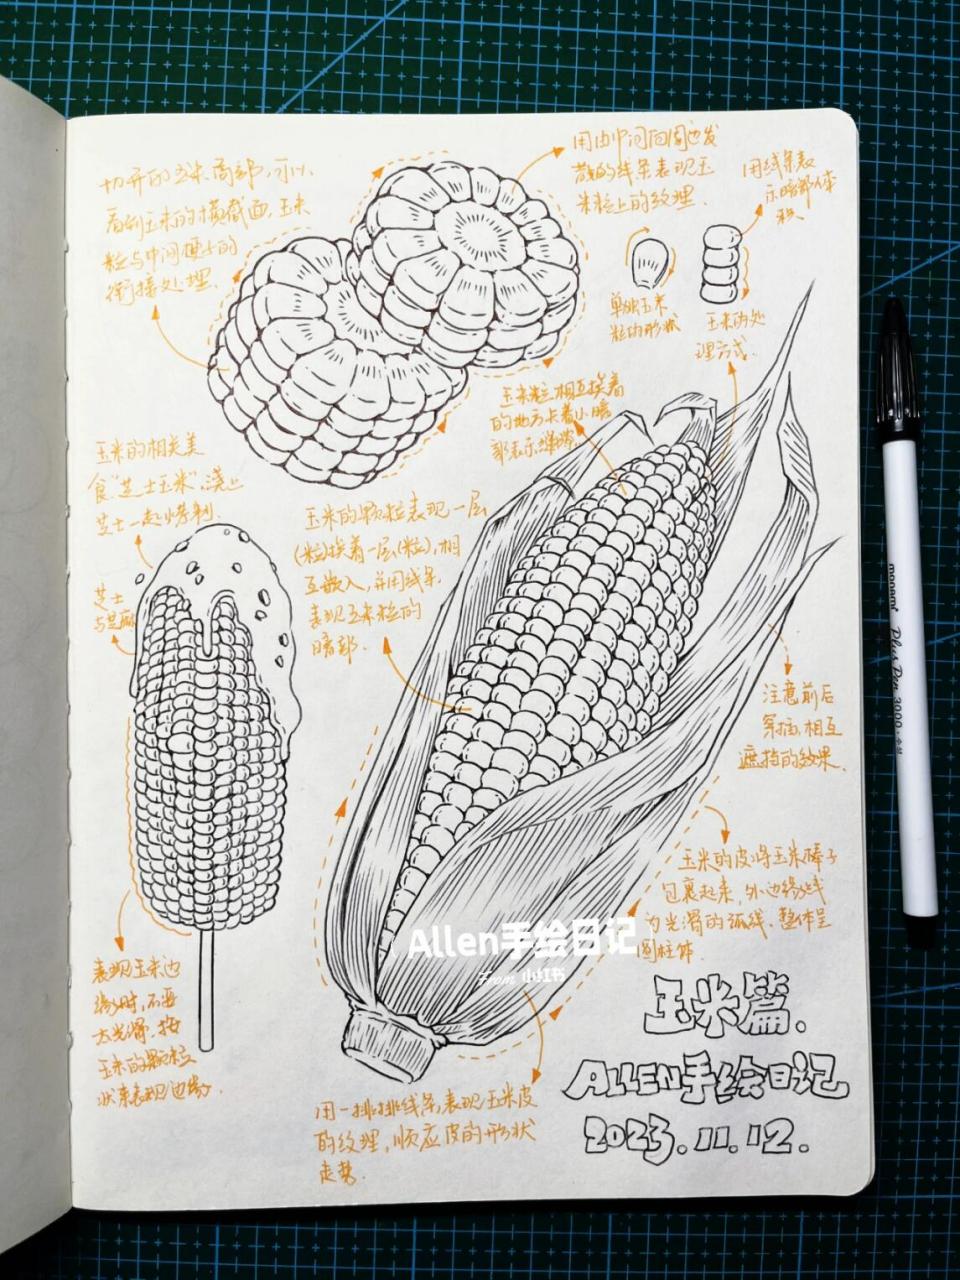 切开的玉米局部,可以
看到玉米的横截面,玉米
粒与中间梗上的
衔接处理.
用由中间向周边发
散的线条表现玉
米粒上的纹理.
用线条表
示暗部体
积.
单独玉米
粒的形状
玉米的处
理方式.
玉米粒相互挨着
的地方卡着小暗
部表示
玉米的相关美
食"芝士玉米",浇上
芝士一起烤制.
芝士
与芝麻
玉米的颗粒表现一层
(粒)挨着一层(粒),相
互嵌入,并用线条
表现玉米粒的
暗部.
注意前后
穿插,相互
遮挡的效果.
玉米的皮将玉米棒子
包裹起来,外边缘线
为光滑的弧线.整体呈
圆柱体.
表现玉米边
缘时,不要
太光滑.按
玉米的颗粒
状来表现边缘.
Allen手绘日记
From 小红书
用一排排线条,表现玉米皮
的纹理,顺应皮的形状
走势.
玉米篇.
ALLEN手绘日记
2023.11.12.
monami Plus Pen 3000